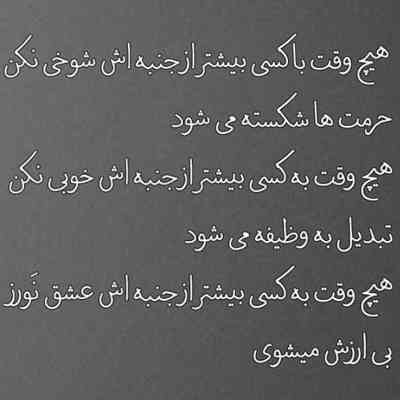 هیچ وقت با کسی بیشتر از جنبه اش شوخی نکن
حرمت ها شکسته می شود
هیچ وقت به کسی بیشتر از جنبه اش خوبی نکن
تبدیل به وظیفه می شود
هیچ وقت به کسی بیشتر از جنبه اش عشق نَورز
بی ارزش میشوی